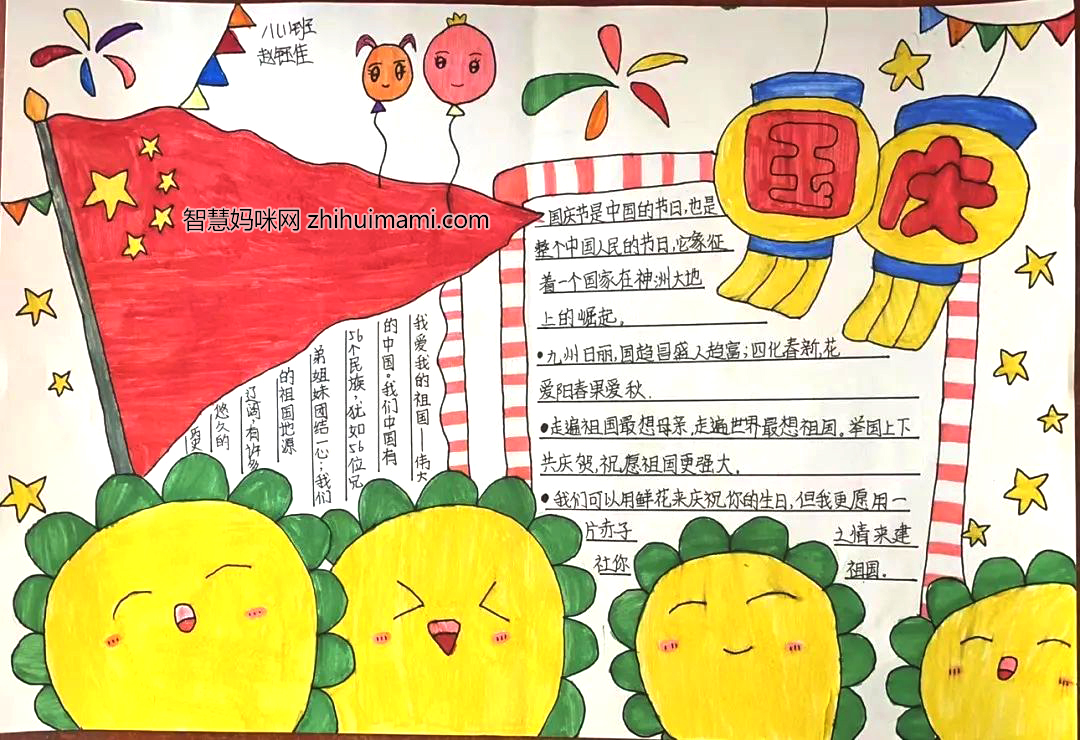 八(1)班
赵钰佳
智慧妈咪网 zhihuimami.com
国
庆
国庆节是中国的节日,也是
整个中国人民的节日,它象征
着一个国家在神洲大地
上的崛起。
•九州日丽,国趋昌盛人趋富;四化春新,花
爱阳春果爱秋.
•走遍祖国最想母亲,走遍世界最想祖国。举国上下
共庆贺,祝愿祖国更强大。
•我们可以用鲜花来庆祝你的生日,但我更愿用一
片赤子之情来建
社你祖国。
我爱我的祖国——伟大
的中国。我们中国有
56个民族,犹如56位兄
弟姐妹团结一心;我们
的祖国地源
辽阔,有许多
悠久的